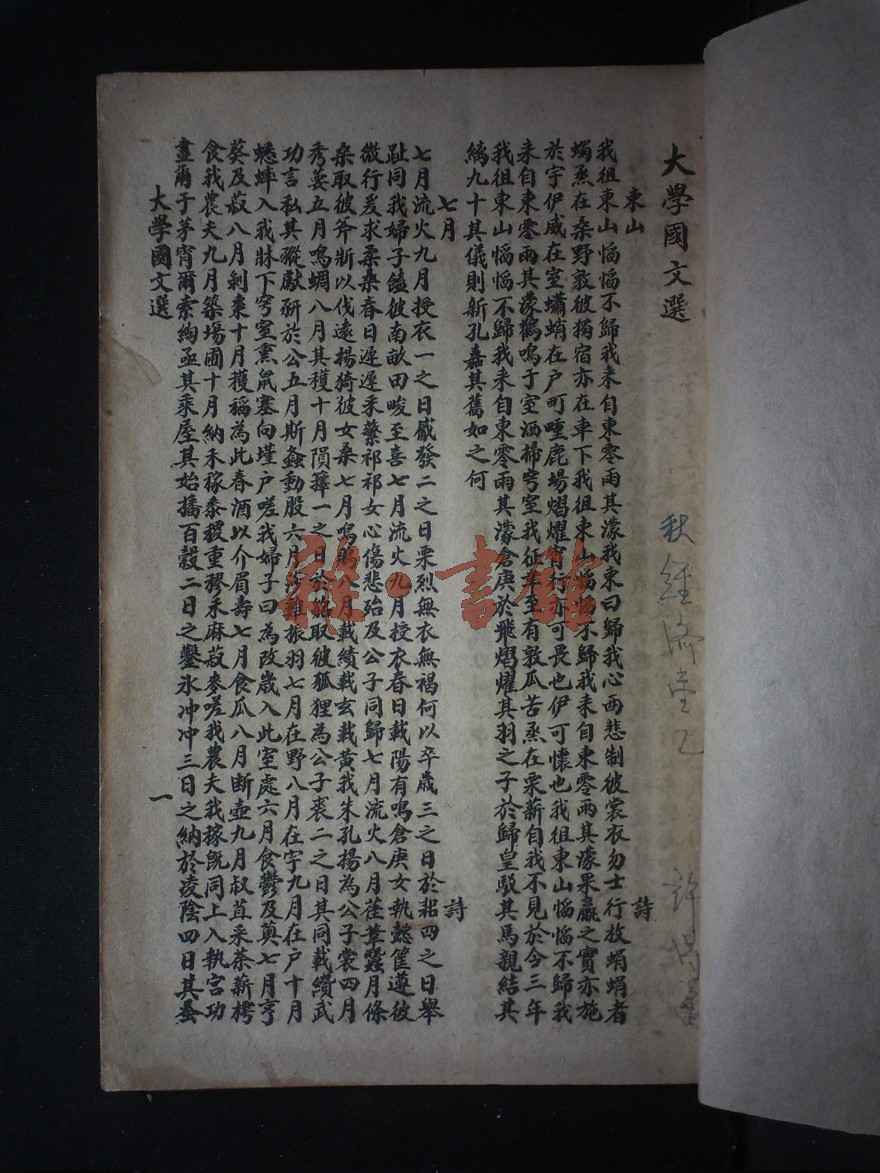 秋經濟壹乙
許
大學國文選
東山 詩
我徂東山慆慆不歸我來自東零雨其濛我東曰歸我心西悲制彼裳衣勿士行枚蜎蜎者
蠋烝在桑野敦彼獨宿亦在車下我徂東山慆慆不歸我來自東零雨其濛果臝之實亦施
於宇伊威在室蠨蛸在戶町畽鹿場熠燿宵行亦可畏也伊可懷也我徂東山慆慆不歸我
來自東零雨其濛鸛鳴于室洒掃穹室我征聿至有敦瓜苦烝在栗薪自我不見於今三年
我徂東山慆慆不歸我來自東零雨其濛倉庚於飛熠燿其羽之子於歸皇駁其馬親結其
縭九十其儀則新孔嘉其舊如之何
七月 詩
七月流火九月授衣一之日觱發二之日栗烈無衣無褐何以卒歲三之日於耜四之日舉
趾同我婦子饁彼南畝田畯至喜七月流火九月授衣春日載陽有鳴倉庚女執懿筐遵彼
微行爰求柔桑春日遲遲采蘩祁祁女心傷悲殆及公子同歸七月流火八月萑葦蠶月條
桑取彼斧斨以伐遠揚猗彼女桑七月鳴鵙八月載績載玄載黃我朱孔揚為公子裳四月
秀葽五月鳴蜩八月其穫十月隕蘀一之日於貉取彼狐狸為公子裘二之日其同載纘武
功言私其豵獻豜於公五月斯螽動股六月莎雞振羽七月在野八月在宇九月在戶十月
蟋蟀入我牀下穹室熏鼠塞向墐戶嗟我婦子曰為改歲入此室處六月食鬱及薁七月亨
葵及菽八月剝棗十月穫稻為此春酒以介眉壽七月食瓜八月斷壺九月叔苴采荼薪樗
食我農夫九月築場圃十月納禾稼黍稷重穋禾麻菽麥嗟我農夫我稼既同上入執宮功
晝爾于茅宵爾索綯亟其乘屋其始播百穀二日之鑿氷冲冲三日之納於淩陰四日其蚤
大學國文選 一
雜·書館